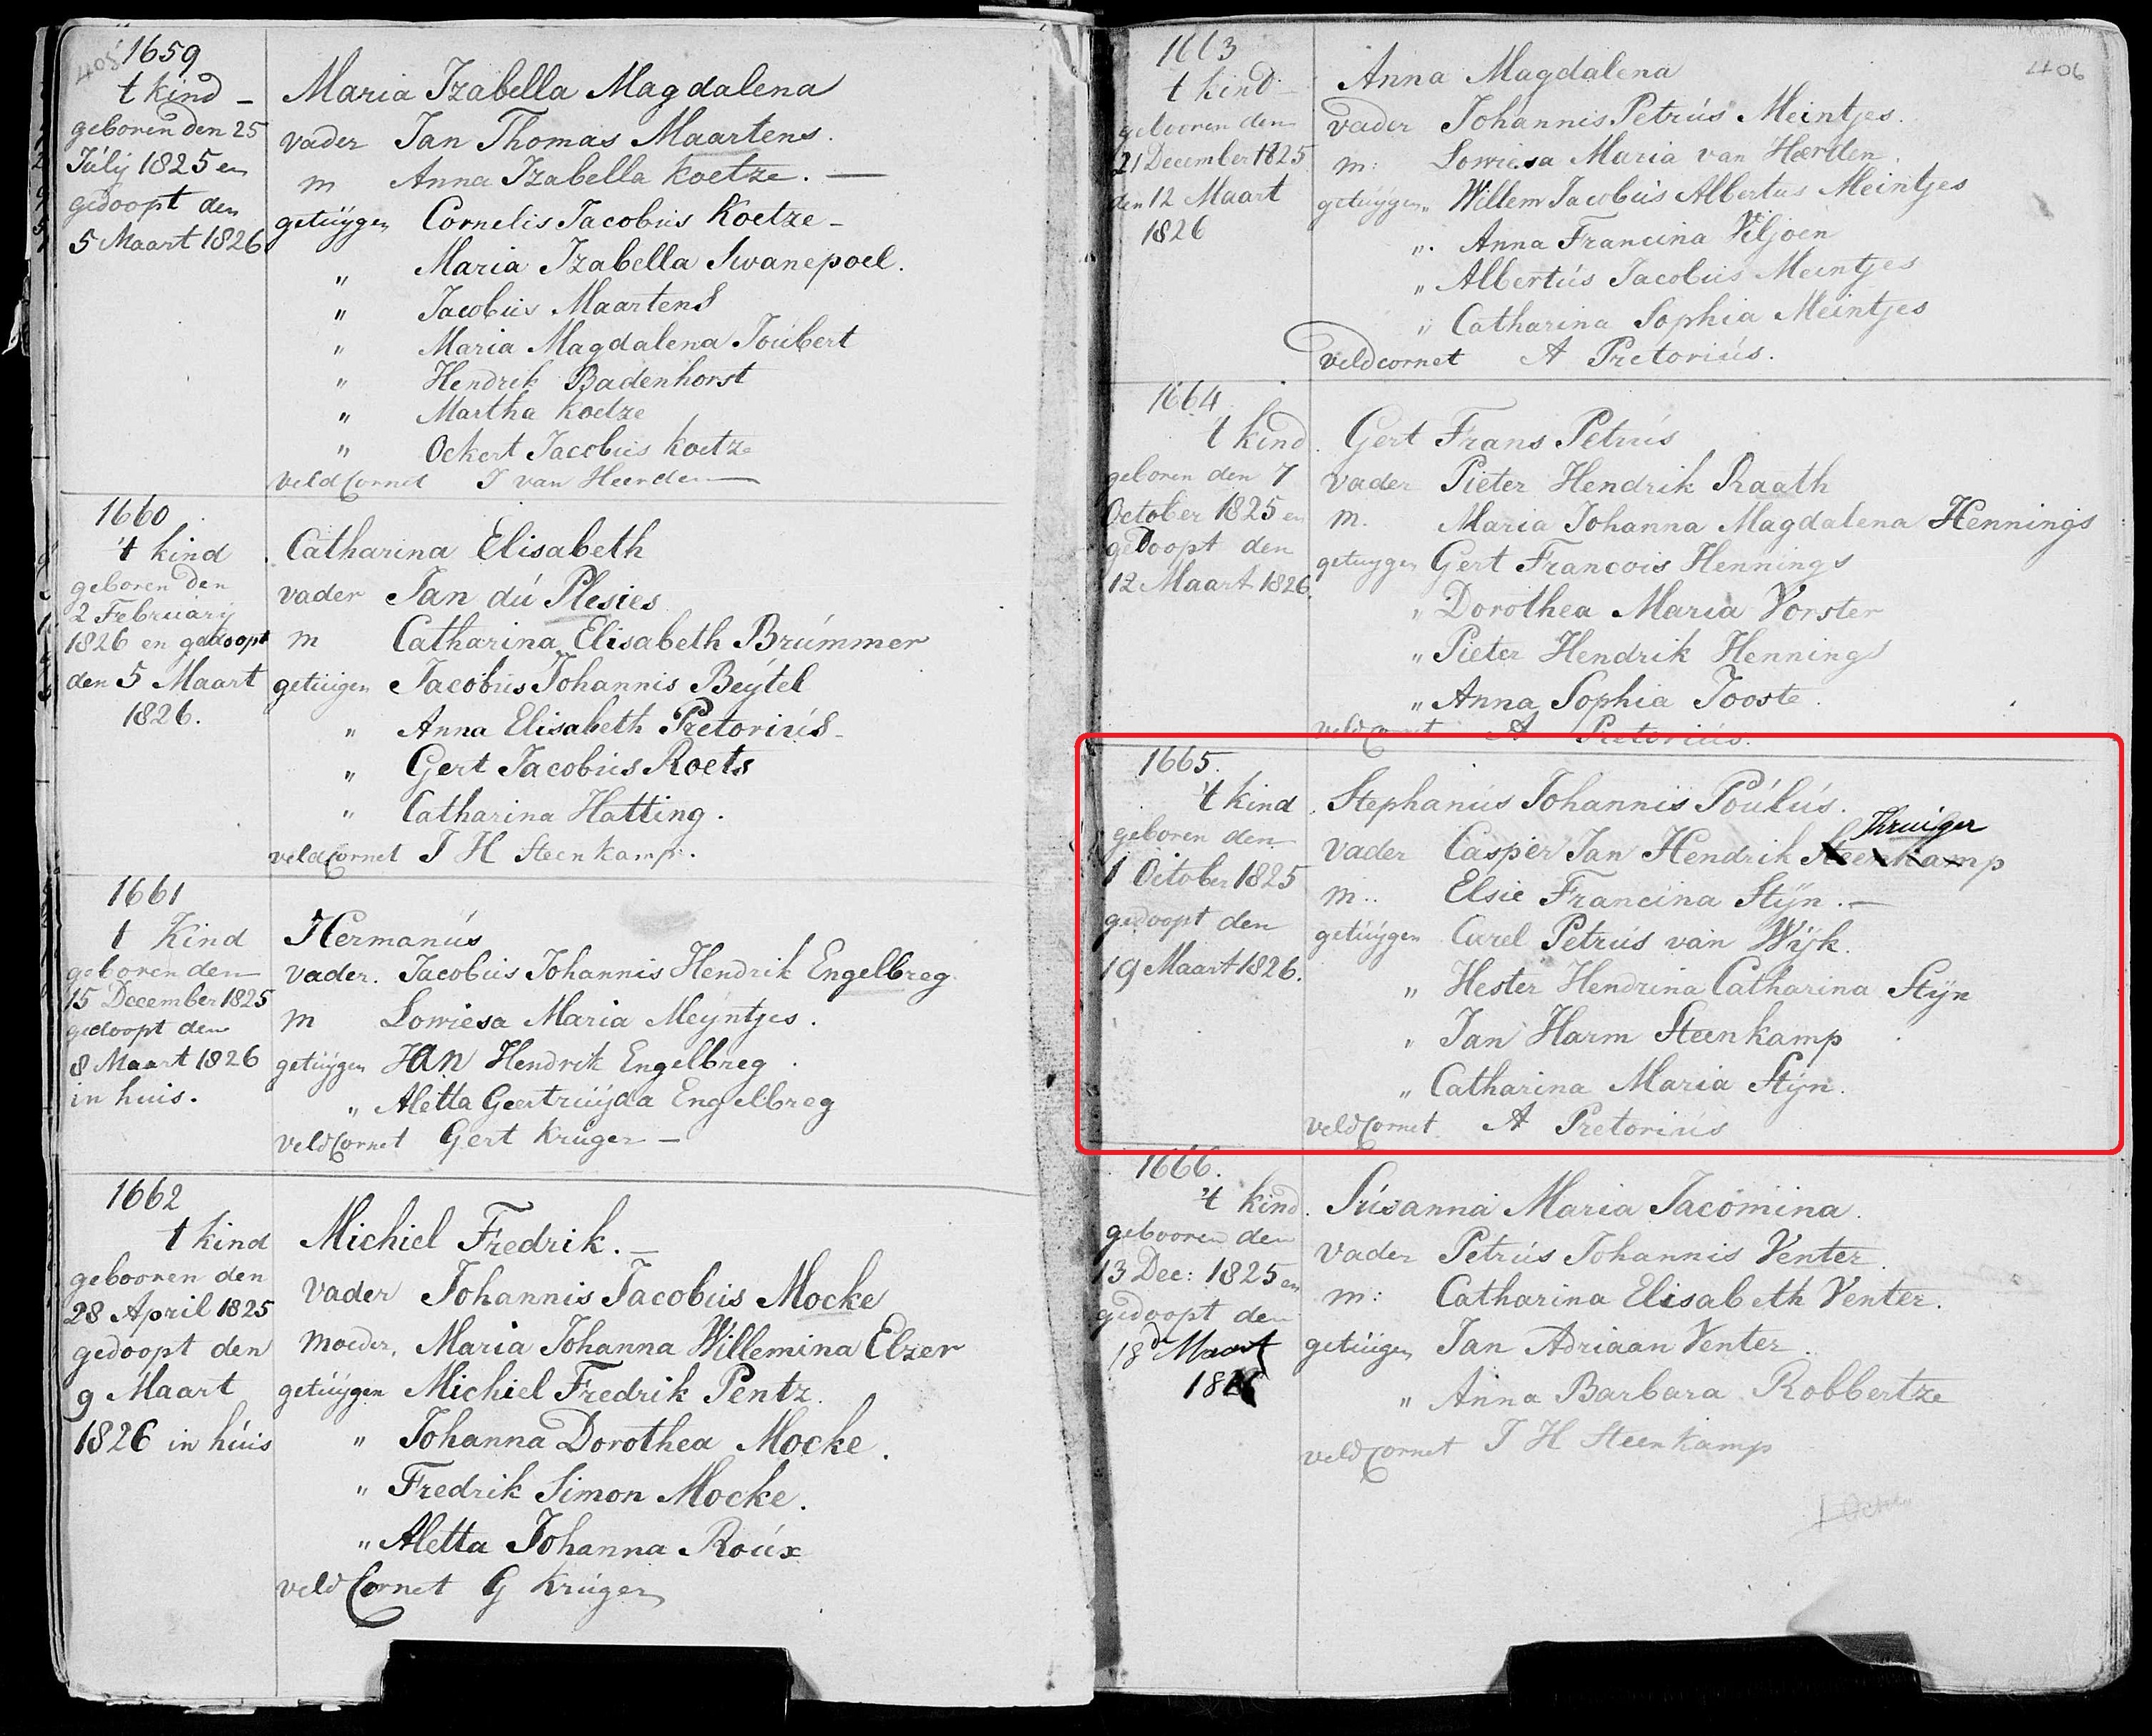 405
1659
t kind - Maria Izabella Magdalena
geboren den 25
vader Jan Thomas Maartens.
Julij 1825 en
m Anna Izabella Koetze. —
gedoopt den
getúÿgen Cornelis Jacobus Koetze -
5 Maart 1826
„ Maria Izabella Swanepoel.
„ Jacobus Maartens
„ Maria Magdalena Joúbert
„ Hendrik Badenhorst
„ Martha Koetze
„ Ockert Jacobus Koetze
veldCornet J van Heerden —
1660
't kind . Catharina Elisabeth
geboren den
vader Jan dú Plesies
2 Februarij
1826 en gedoopt
m Catharina Elisabeth Brúmmer
den 5 Maart
getúigen Jacobus Johannis Beÿtel
1826.
„ Anna Elisabeth Pretoriús -
„ Gert Jacobus Roets
„ Catharina Hatting.
veldCornet J H Steenkamp.
1661
t Kind Hermanús
geboren den
vader. Jacobus Johannis Hendrik Engelbreg.
15 December 1825
gedoopt den
m Lowiesa Maria Meÿntjes.
8 Maart 1826
getúÿgen Jan Hendrik Engelbreg.
in huis.
„ Aletta Geertruÿda Engelbreg
veldCornet Gert Kruger —
1662
t kind Michiel Fredrik. —
gebooren den
vader Johannis Jacobus Mocke
28 April 1825
gedoopt den
Moeder, Maria Johanna Willemina Elzer
9 Maart
getúÿgen Michiel Fredrik Pentz.
1826 in húis
„ Johanna Dorothea Mocke.
„ Fredrik Simon Mocke.
„ Aletta Johanna Roúx
veldCornet G Krúger
406
1663
t kind Anna Magdalena
gebooren den
vader Johannis Petrús Meintjes.
21 December 1825
m: Lowiesa Maria van Heerden.
den 12 Maart
getúÿgen „ Willem Jacobus Albertus Meintjes
1826
„. Anna Francina Viljoen
„ Albertús Jacobus Meintjes
„ Catharina Sophia Meintjes
veldcornet A Pretoriús.
1664
t kind . Gert Frans Petrús
geboren den 7
vader Pieter Hendrik Raath
October 1825 en
m. Maria Johanna Magdalena Hennings
gedoopt den
getuygen Gert Francois Hennings
12 Maart 1826
„ Dorothea Maria Vorster
„ Pieter Hendrik Hennings
„ Anna Sophia Jooste.
veldCornet A Pretoriús.
1665.
't kind . Stephanús Johannis Poúlús.
geboren den
Kruiger
vader Casper Jan Hendrik Steenkamp
1 October 1825
m.. Elsie Francina Stÿn. —
gedoopt den
getúÿgen Carel Petrús van Wÿk.
19 Maart 1826.
„ Hester Hendrina Catharina Stÿn
„ Jan Harm Steenkamp
„ Catharina Maria Stÿn.
veldCornet. A Pretoriús
1666.
't kind. Súsanna Maria Jacomina.
gebooren den
vader Petrús Johannis Venter.
13 Dec: 1825 en
m: Catharina Elisabeth Venter.
gedoopt den
18d Maart
getúigen Jan Adriaan Venter.
„ Anna Barbara Robbertze
veldCornet J H Steenkamp